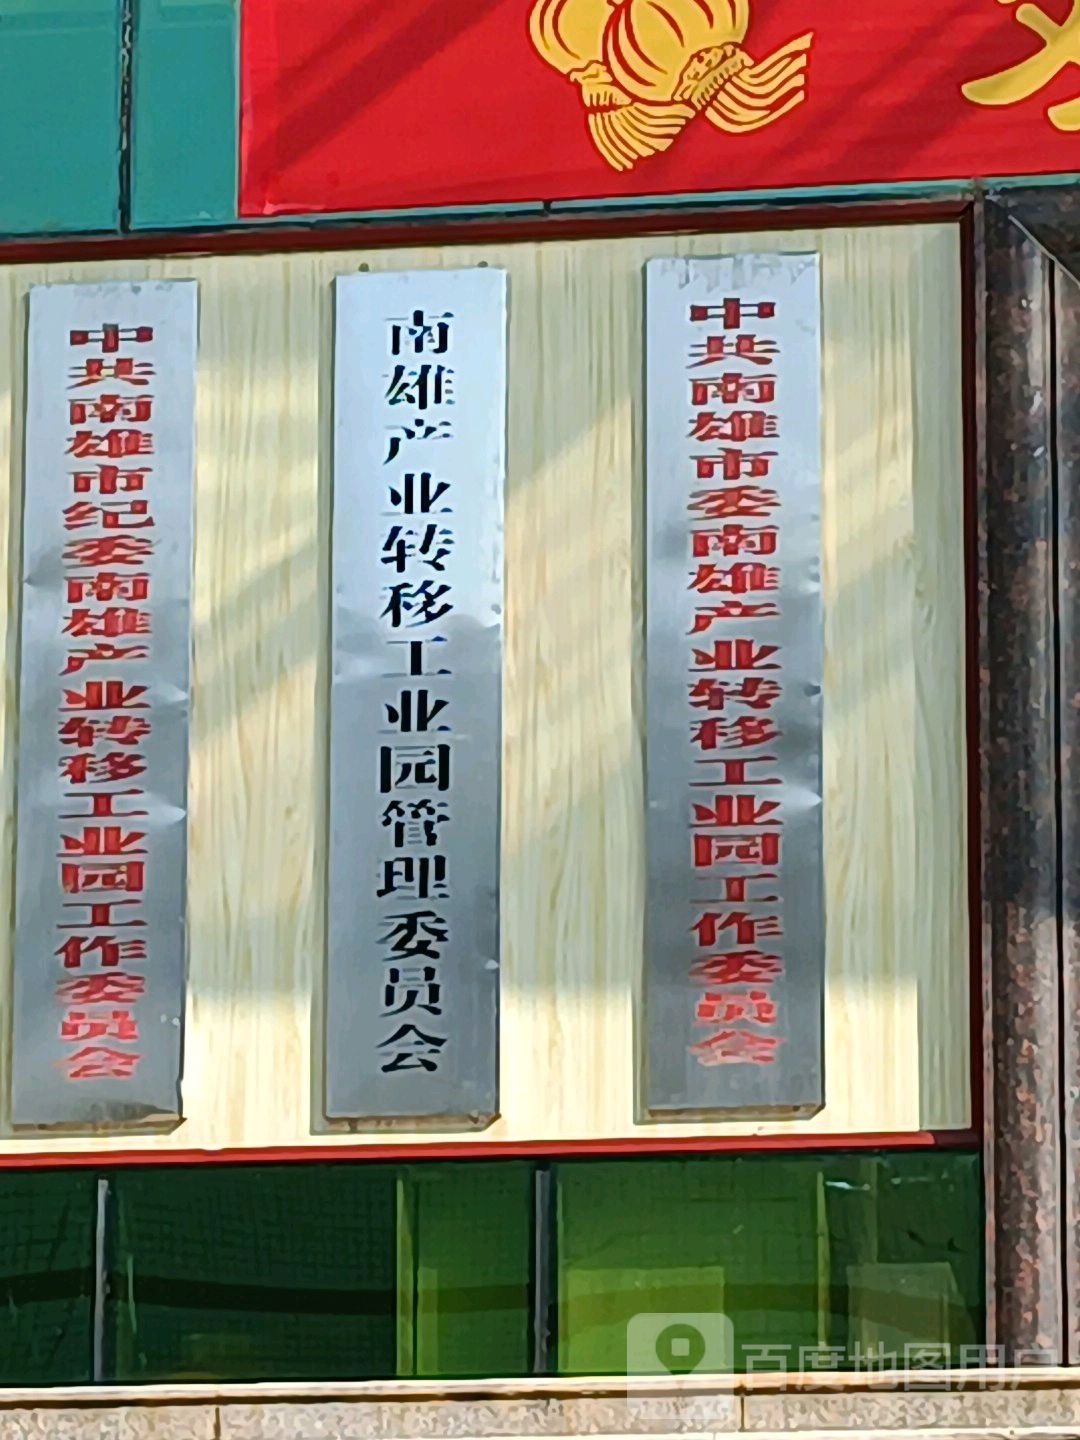 中共南雄市纪委南雄产业转移工业园工作委员会
南雄产业转移工业园管理委员会
中共南雄市委南雄产业转移工业园工作委员会
百度地图用户